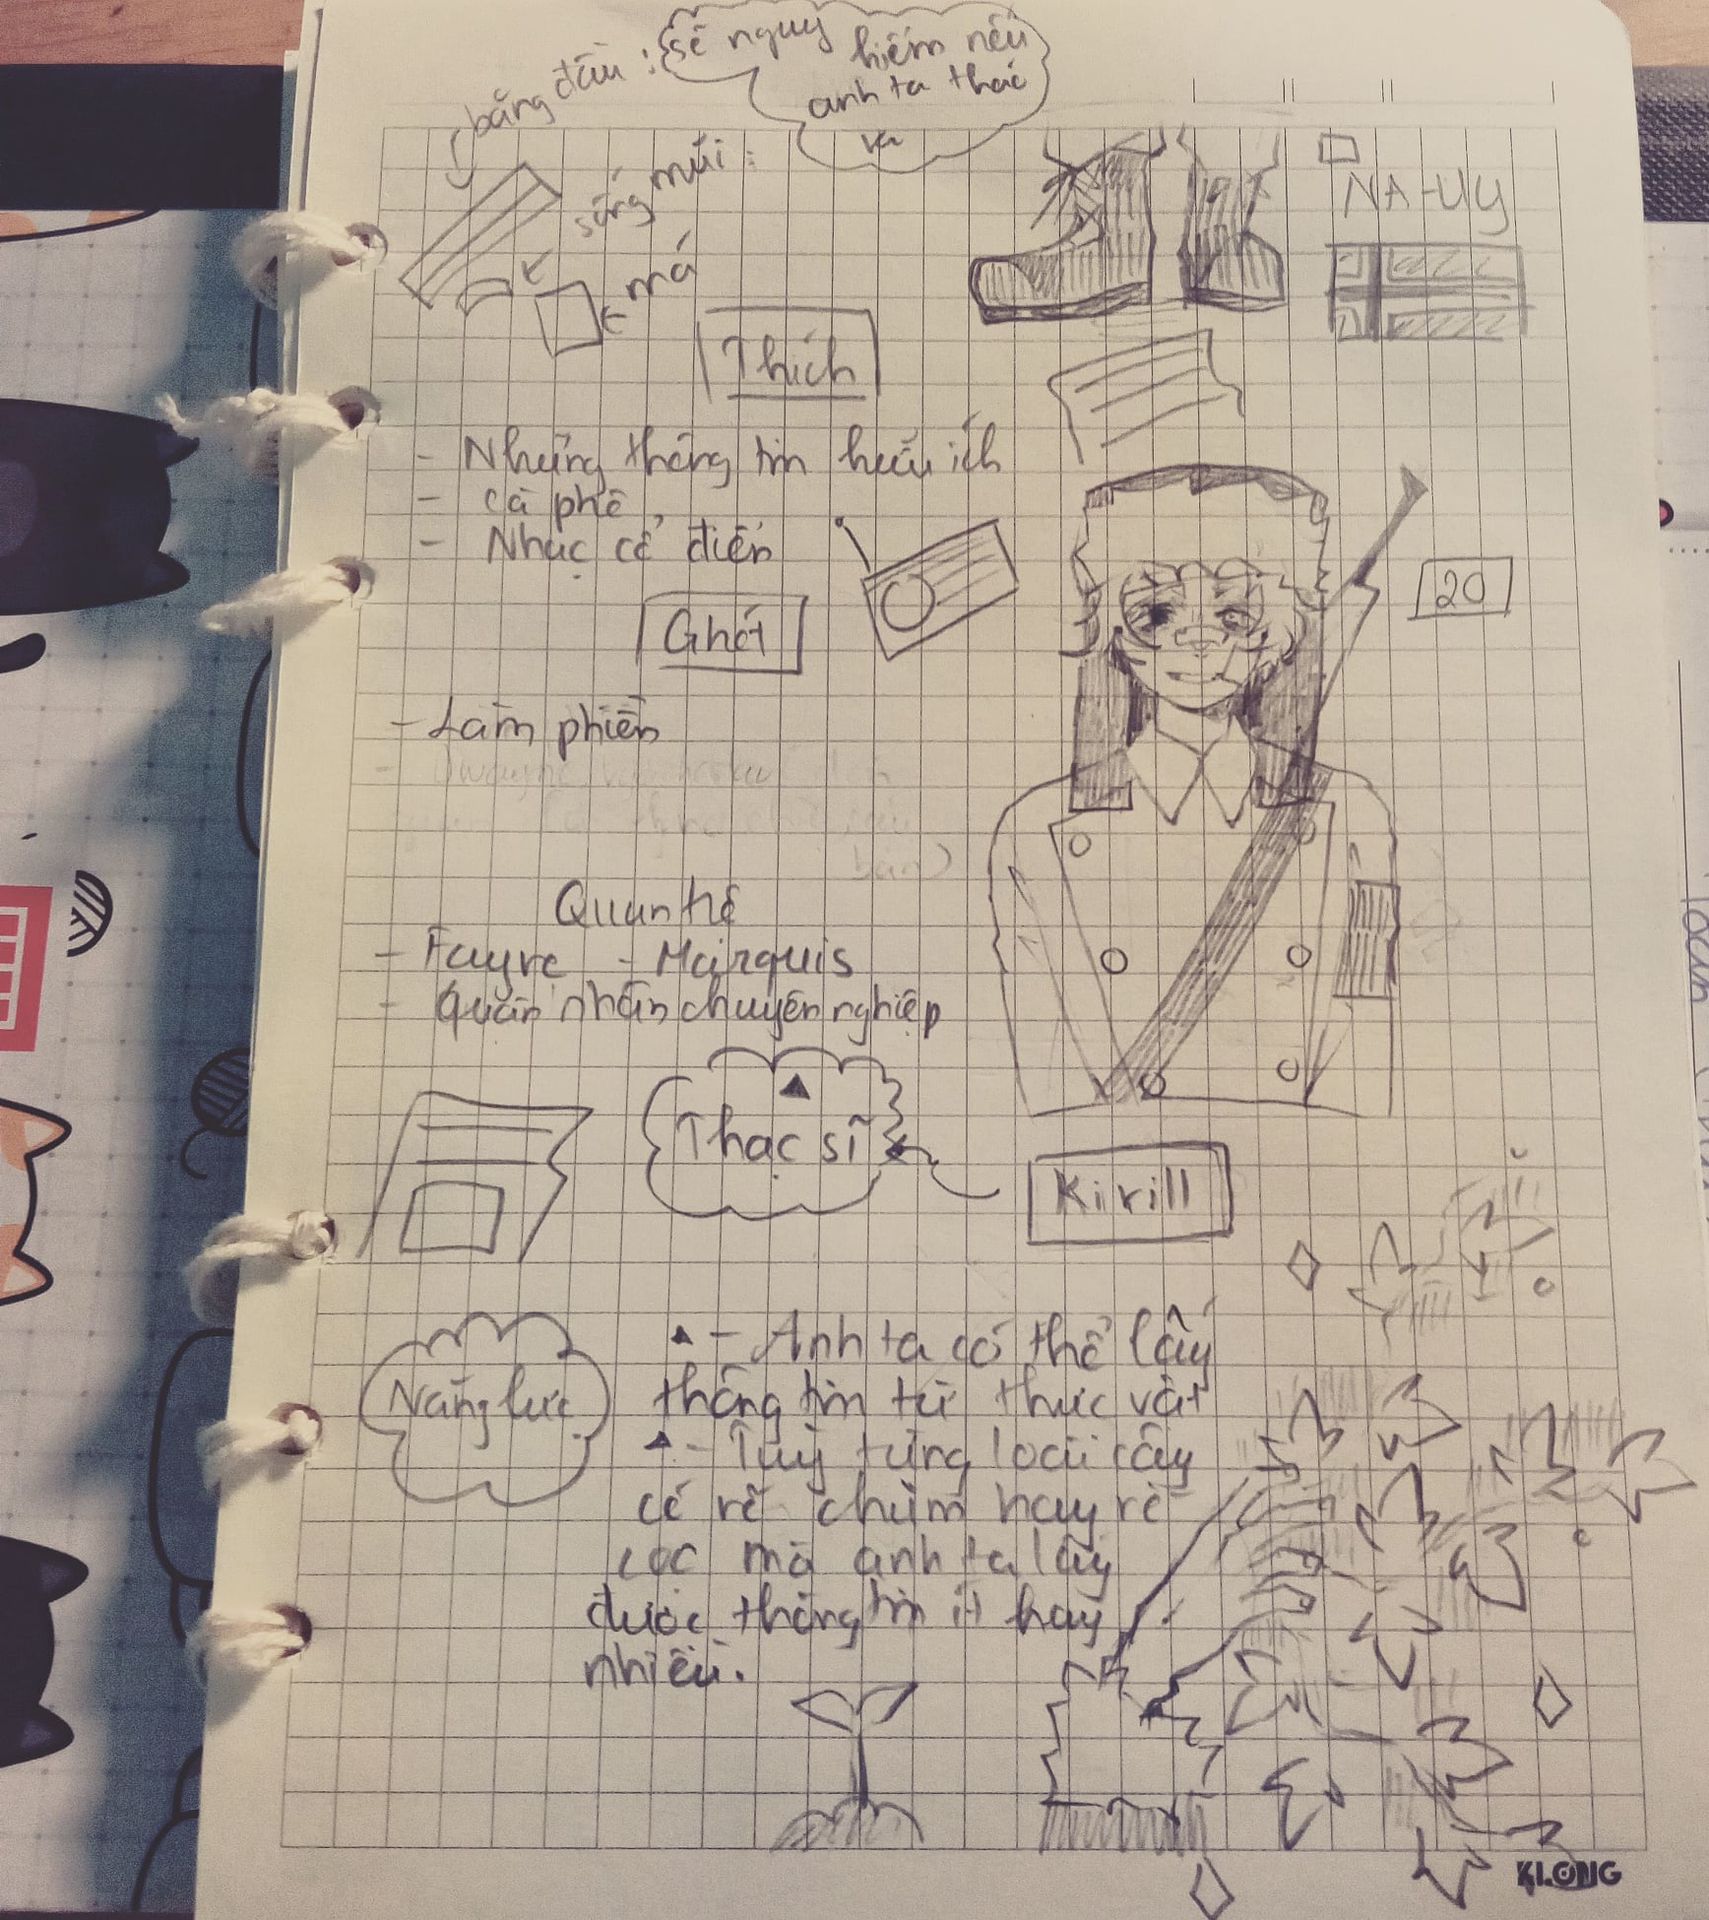 băng đầu :
sẽ nguy hiểm nếu
anh ta tháo
ra
sống mũi :
má
NA-UY
Thích
- Những thông tin hữu ích
- cà phê
- Nhạc cổ điển
20
Ghét
- Làm phiền
bán)
Quan hệ
- Fayre - Marquis
- Quân nhân chuyên nghiệp
Thạc sĩ
Kirill
Năng lực
- Anh ta có thể lấy
thông tin từ thực vật
- Tuỳ từng loài cây
có rễ chùm hay rễ
cọc mà anh ta lấy
được thông tin ít hay
nhiều.
KLONG